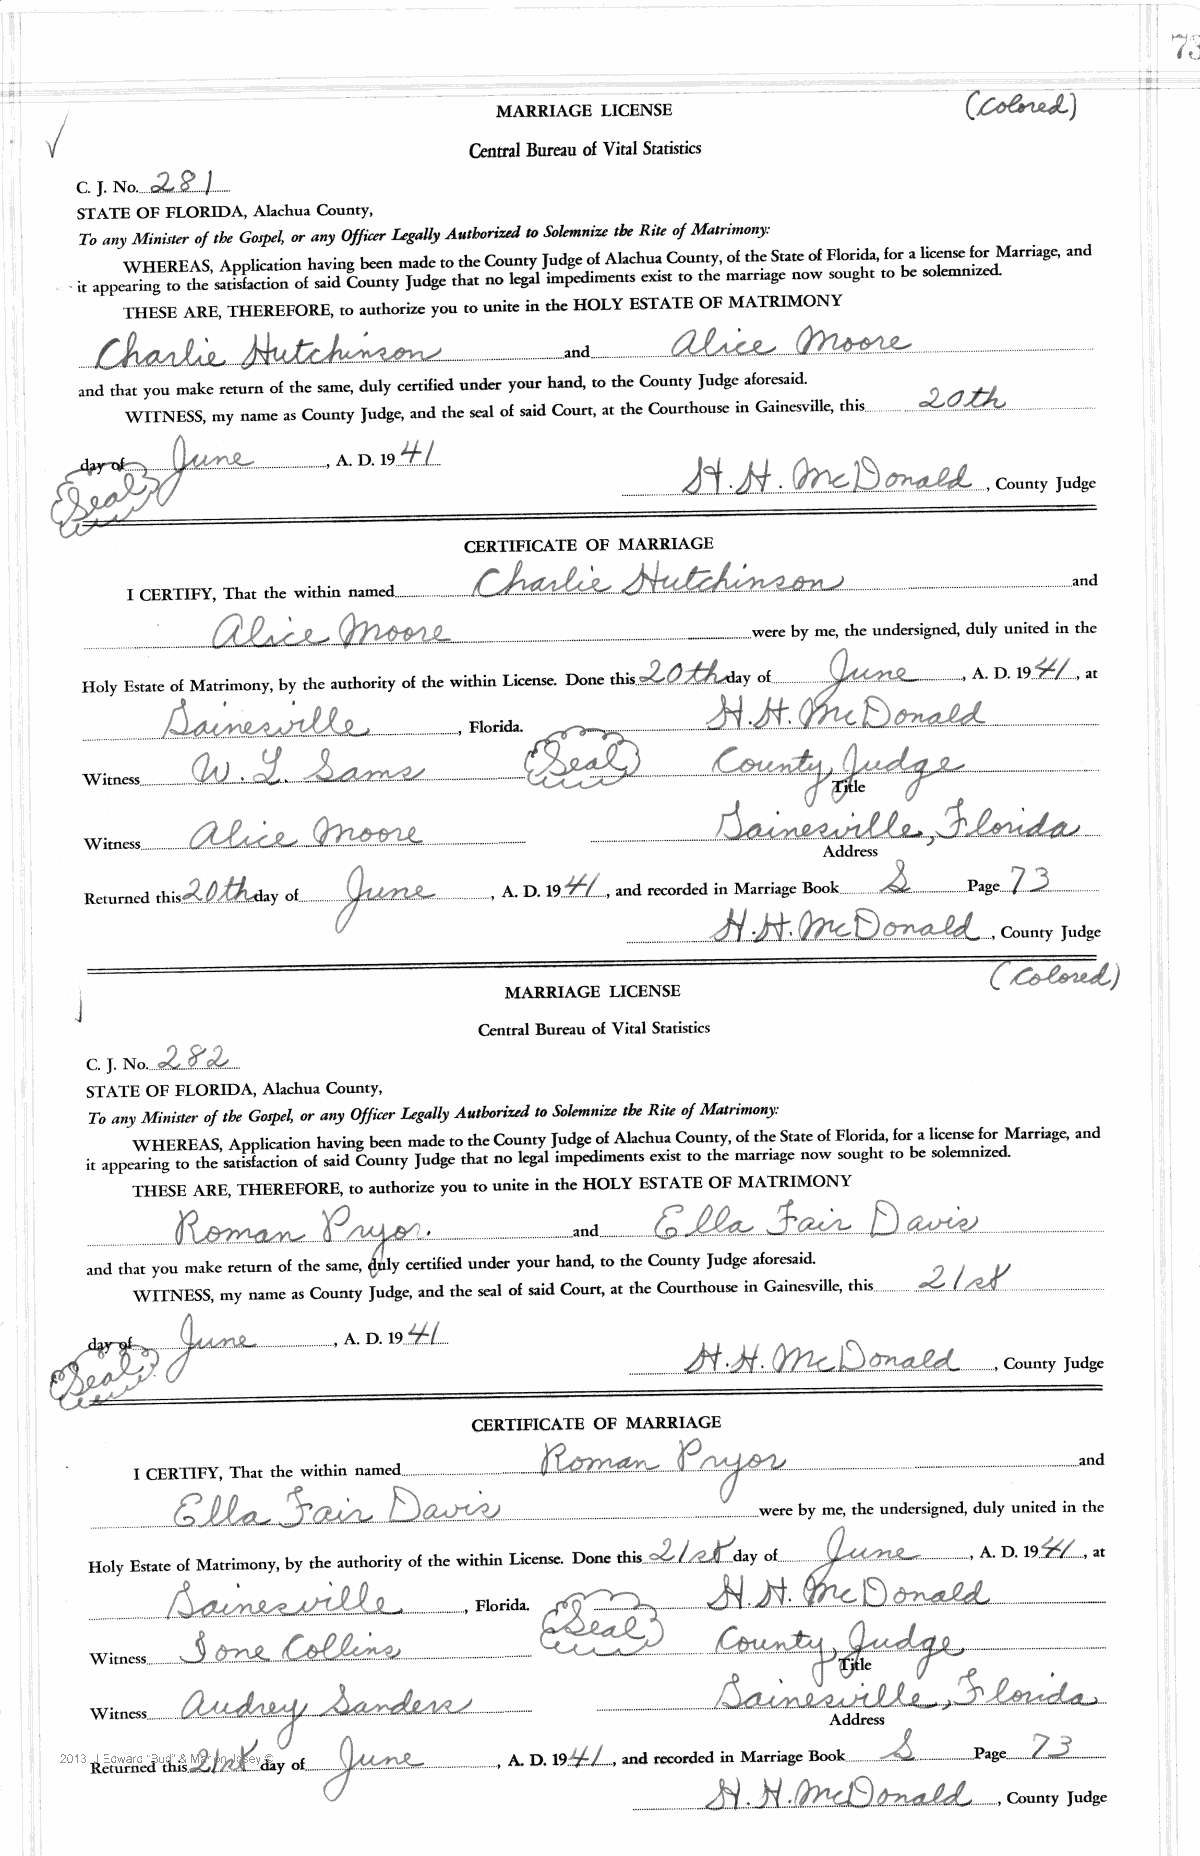 73
MARRIAGE LICENSE (Colored)
Central Bureau of Vital Statistics
C. J. No. 281
STATE OF FLORIDA, Alachua County,
To any Minister of the Gospel, or any Officer Legally Authorized to Solemnize the Rite of Matrimony:
WHEREAS, Application having been made to the County Judge of Alachua County, of the State of Florida, for a license for Marriage, and
it appearing to the satisfaction of said County Judge that no legal impediments exist to the marriage now sought to be solemnized.
THESE ARE, THEREFORE, to authorize you to unite in the HOLY ESTATE OF MATRIMONY
Charlie Hutchinson and Alice Moore
and that you make return of the same, duly certified under your hand, to the County Judge aforesaid.
WITNESS, my name as County Judge, and the seal of said Court, at the Courthouse in Gainesville, this 20th
day of June, A. D. 1941
Seal H. H. McDonald, County Judge
CERTIFICATE OF MARRIAGE
I CERTIFY, That the within named Charlie Hutchinson and
Alice Moore were by me, the undersigned, duly united in the
Holy Estate of Matrimony, by the authority of the within License. Done this 20th day of June, A. D. 1941, at
Gainesville, Florida. H. H. McDonald
Witness W. L. Sams Seal County Judge
Title
Witness Alice Moore Gainesville, Florida
Address
Returned this 20th day of June, A. D. 1941, and recorded in Marriage Book S Page 73
H. H. McDonald, County Judge
(Colored)
MARRIAGE LICENSE
Central Bureau of Vital Statistics
C. J. No. 282
STATE OF FLORIDA, Alachua County,
To any Minister of the Gospel, or any Officer Legally Authorized to Solemnize the Rite of Matrimony:
WHEREAS, Application having been made to the County Judge of Alachua County, of the State of Florida, for a license for Marriage, and
it appearing to the satisfaction of said County Judge that no legal impediments exist to the marriage now sought to be solemnized.
THESE ARE, THEREFORE, to authorize you to unite in the HOLY ESTATE OF MATRIMONY
Roman Pryor. and Ella Fair Davis
and that you make return of the same, duly certified under your hand, to the County Judge aforesaid.
WITNESS, my name as County Judge, and the seal of said Court, at the Courthouse in Gainesville, this 21st
day of June, A. D. 1941
Seal H. H. McDonald, County Judge
CERTIFICATE OF MARRIAGE
I CERTIFY, That the within named Roman Pryor and
Ella Fair Davis were by me, the undersigned, duly united in the
Holy Estate of Matrimony, by the authority of the within License. Done this 21st day of June, A. D. 1941, at
Gainesville, Florida. H. H. McDonald
Witness Ione Collins Seal County Judge
Title
Witness Audrey Sanders Gainesville, Florida
Address
2013 J Edward "Bud" & Marion Josey ©
Returned this 21st day of June, A. D. 1941, and recorded in Marriage Book S Page 73
H. H. McDonald, County Judge